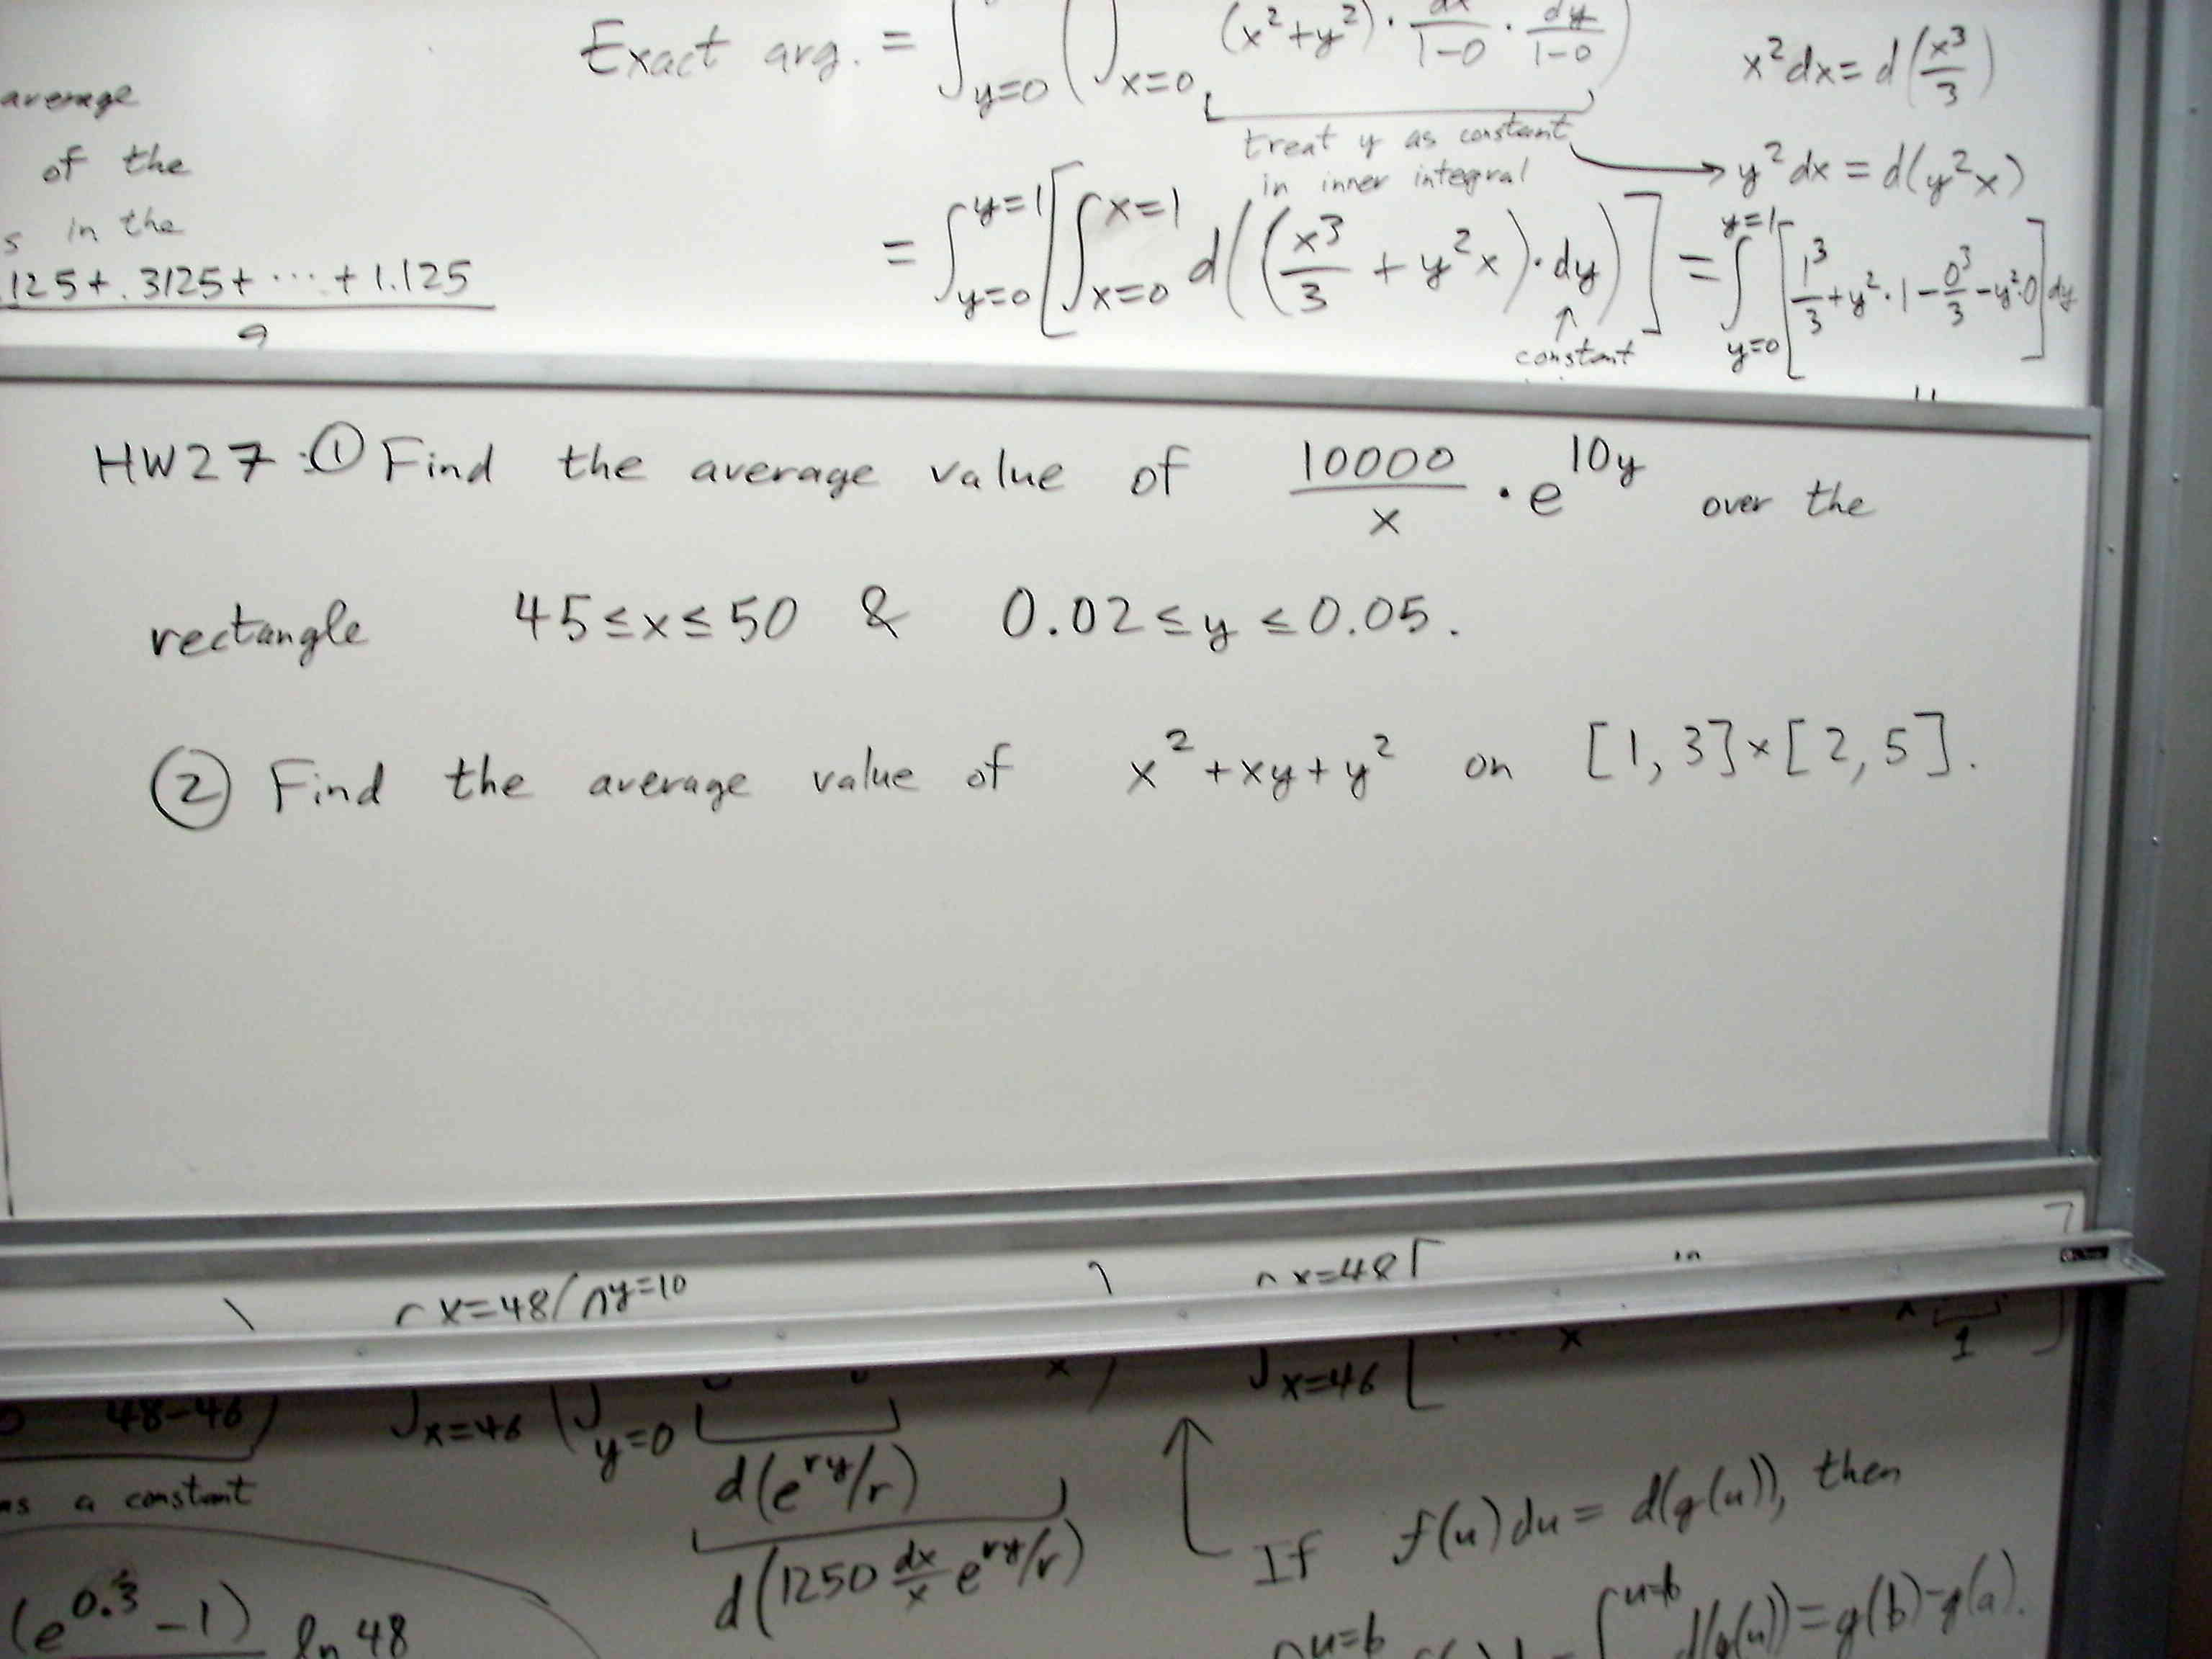 average
of the
s in the
.125+.3125+ ⋯ + 1.125
9
Exact avg. = ∫_{y=0} ( ∫_{x=0} (x²+y²)· dx/(1-0) · dy/(1-0) )
treat y as constant
in inner integral
x²dx = d(x³/3)
→ y²dx = d(y²x)
= ∫_{y=0}^{y=1} [ ∫_{x=0}^{x=1} d( (x³/3 + y²x)·dy ) ] = ∫_{y=0}^{y=1} [ 1³/3 + y²·1 - 0³/3 - y²·0 ] dy
↑
constant
HW27 ① Find the average value of 10000/x · e^{10y} over the
rectangle 45≤x≤50 & 0.02≤y≤0.05.
② Find the average value of x²+xy+y² on [1,3]×[2,5].
x=48 ( y=10
x=48 [
48-46 )
∫_{x=46} ( ∫_{y=0}
x )
∫_{x=46} [
x
1
as a constant
d(e^{ry}/r)
d(1250 dx/x e^{ry}/r)
(e^{0.3} -1) ln 48
If f(u)du = d(g(u)), then
u=b
∫^{u=b} d(g(u)) = g(b)-g(a).